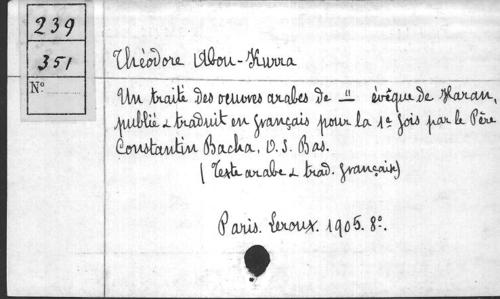 239
351
N°
Théodore Abou-Kurra
Un traité des oeuvres arabes de " évêque de Haran,
publié & traduit en français pour la 1e fois par le Père
Constantin Bacha, O. S. Bas.
(Texte arabe & trad. française)
Paris. Leroux. 1905. 8°.